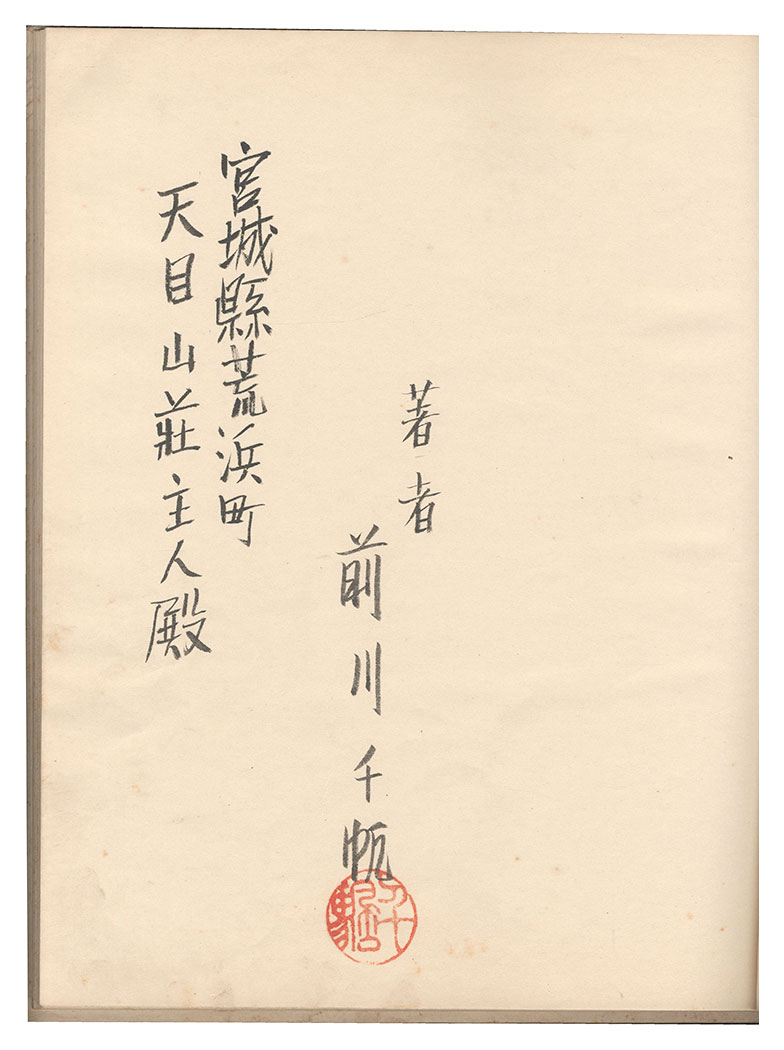 著者
前川千帆
宮城縣荒浜町
天目山莊主人殿